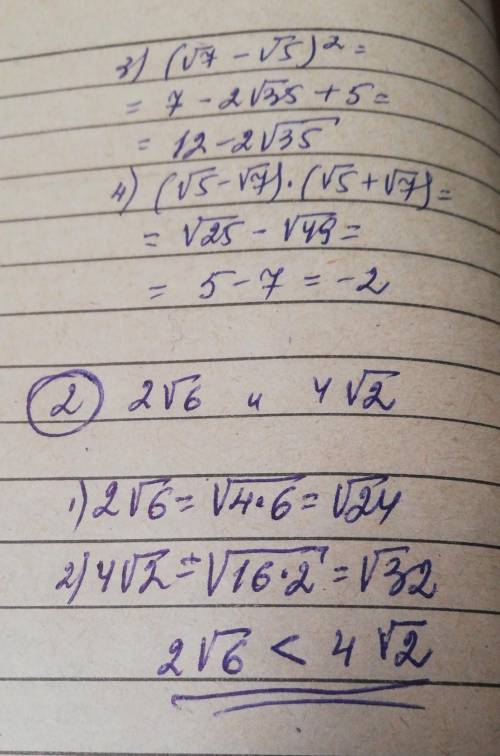 3) (√7 - √5)² =
= 7 - 2√35 + 5 =
= 12 - 2√35
4) (√5 - √7) · (√5 + √7) =
= √25 - √49 =
= 5 - 7 = -2
2 2√6 и 4√2
1) 2√6 = √4·6 = √24
2) 4√2 = √16·2 = √32
2√6 < 4√2